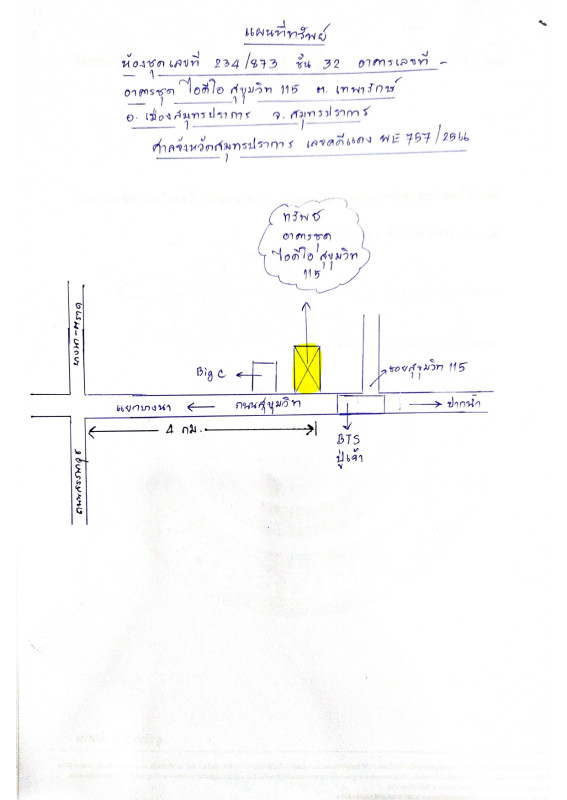 แผนที่ทรัพย์
ห้องชุดเลขที่ 234/873 ชั้น 32 อาคารเลขที่ -
อาคารชุด ไอดีโอ สุขุมวิท 115 ต. เทพารักษ์
อ. เมืองสมุทรปราการ จ. สมุทรปราการ
ศาลจังหวัดสมุทรปราการ เลขคดีแดง ผบE 757/2566
ทรัพย์
อาคารชุด
ไอดีโอ สุขุมวิท
115
บางนา-ตราด
Big C
ซอยสุขุมวิท 115
แยกบางนา
ถนนสุขุมวิท
ปากน้ำ
4 กม.
BTS
ปู่เจ้า
ถนนสรรพาวุธ